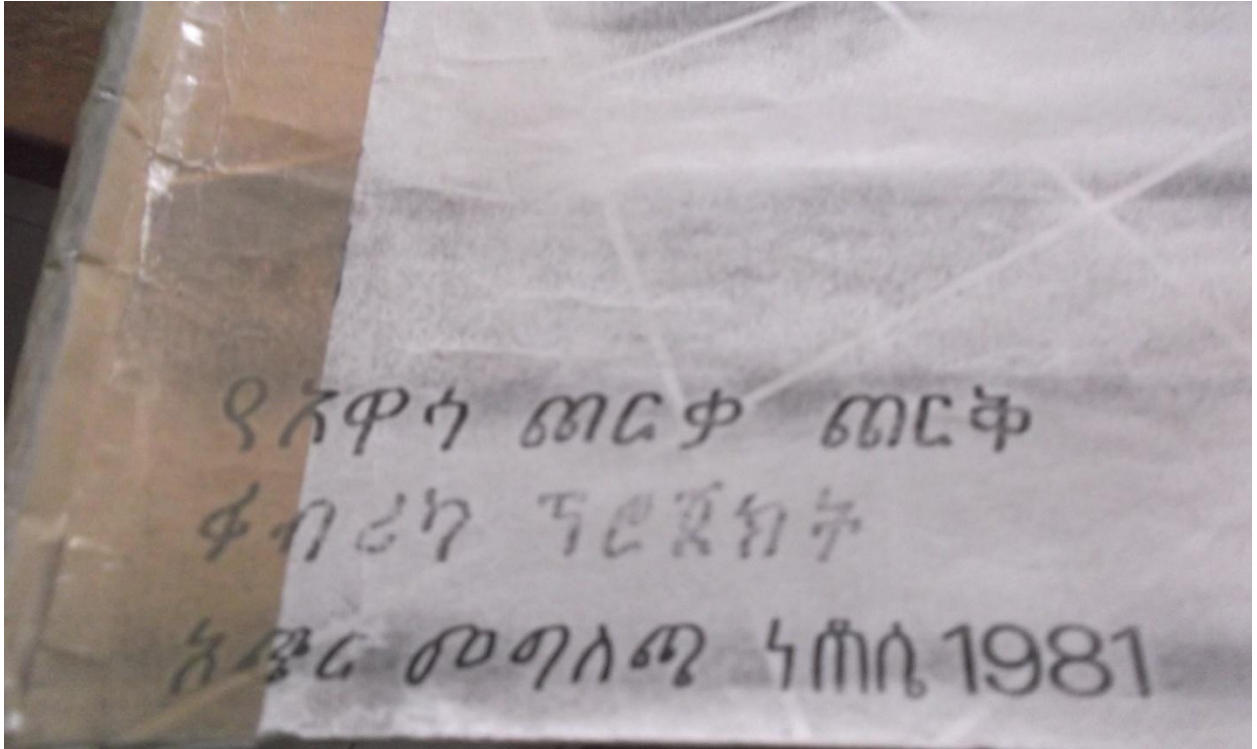 የአዋሳ ጨርቃ ጨርቅ
ፋብሪካ ፕሮጀክት
አጭር መግለጫ ነሐሴ 1981